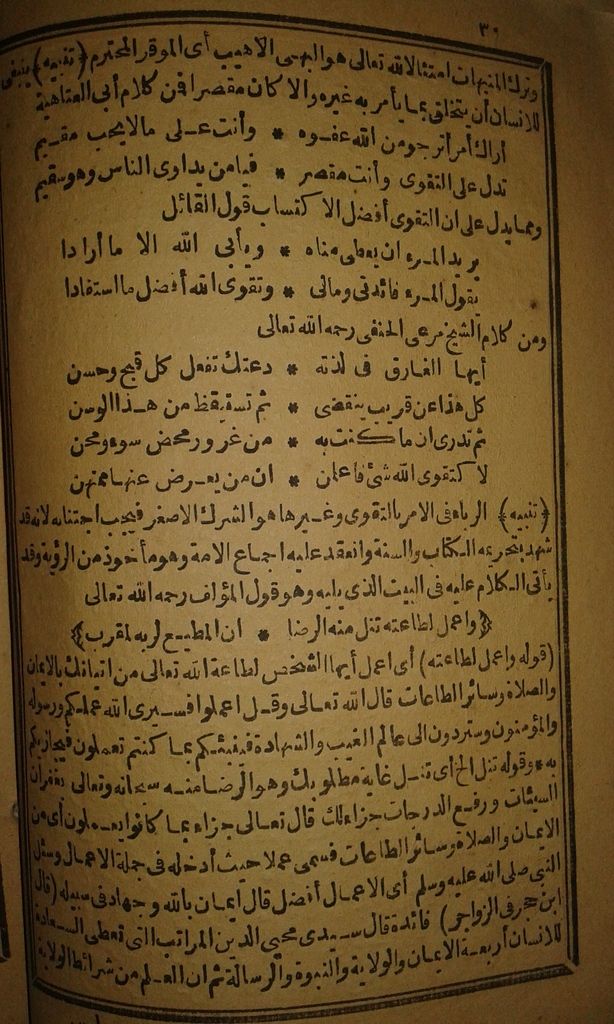 ٣٦
وترك المنهيات امتثالا لله تعالى هو البهى الاهيب أى الموقر المحترم (تنبيه) ينبغى
للانسان أن يتخلق بما يأمر به غيره والا كان مقصرا فمن كلام أبى العتاهية
أراك امرأ ترجو من الله عفوه * وأنت على مالا يحب مقيم
تدل على التقوى وأنت مقصر * فيامن يداوى الناس وهو سقيم
ومما يدل على ان التقوى أفضل الاكتساب قول القائل
يريد المرء ان يعطى مناه * ويأبى الله الا ما أرادا
يقول المرء فائدتى ومالى * وتقوى الله أفضل ما استفادا
ومن كلام الشيخ مرعى الحنفى رحمه الله تعالى
أيها الغارق فى لذته * دعتك تفعل كل قبيح وحسن
كل هذا عن قريب ينقضى * ثم تستيقظ من هذا الوسن
ثم تدرى ان ما كنت به * من غرور محض سوء ومحن
لا كتقوى الله شئ فاعلمن * ان من يعرض عنها
(تنبيه) الرياء فى الامر بالتقوى وغيرها هو الشرك الاصغر فيجب اجتنابه لانه قد
شهد بتحريمه الكتاب والسنة وانعقد عليه اجماع الامة وهو مأخوذ من الرؤية وقد
يأتى الكلام عليه فى البيت الذى يليه وهو قول المؤلف رحمه الله تعالى
(واعمل لطاعته تنل منه الرضا * ان المطيع لربه لمقرب)
(قوله واعمل لطاعته) أى اعمل أيها الشخص لطاعة الله تعالى من اتيانك بالايمان
والصلاة وسائر الطاعات قال الله تعالى وقل اعملوا فسيرى الله عملكم ورسوله
والمؤمنون وستردون الى عالم الغيب والشهادة فينبئكم بما كنتم تعملون فيجازيكم
به * وقوله تنل الخ أى تنل غاية مطلوبك وهو الرضا منه سبحانه وتعالى بغفران
السيئات ورفع الدرجات جزاء لك قال تعالى جزاء بما كانوا يعملون أى من
الايمان والصلاة وسائر الطاعات فسمى عملا حيث أدخله فى جملة الاعمال وسئل
النبى صلى الله عليه وسلم أى الاعمال أفضل قال ايمان بالله وجهاد فى سبيله (قال
ابن حجر فى الزواجر) فائدة قال سيدى محيى الدين المراتب التى تعطى السعادة
للانسان أربعة الايمان والولاية والنبوة والرسالة ثم ان العلم من شرائط الولاية